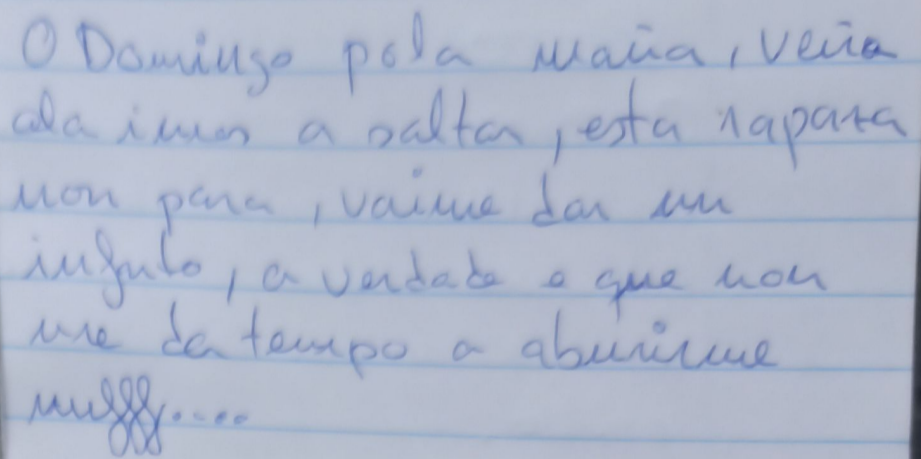 O Domingo pola maña, veña
ala imos a saltar, esta rapaza
non para, vaime dar un
infarto, a verdade e que non
me da tempo a aburirme
muffff....